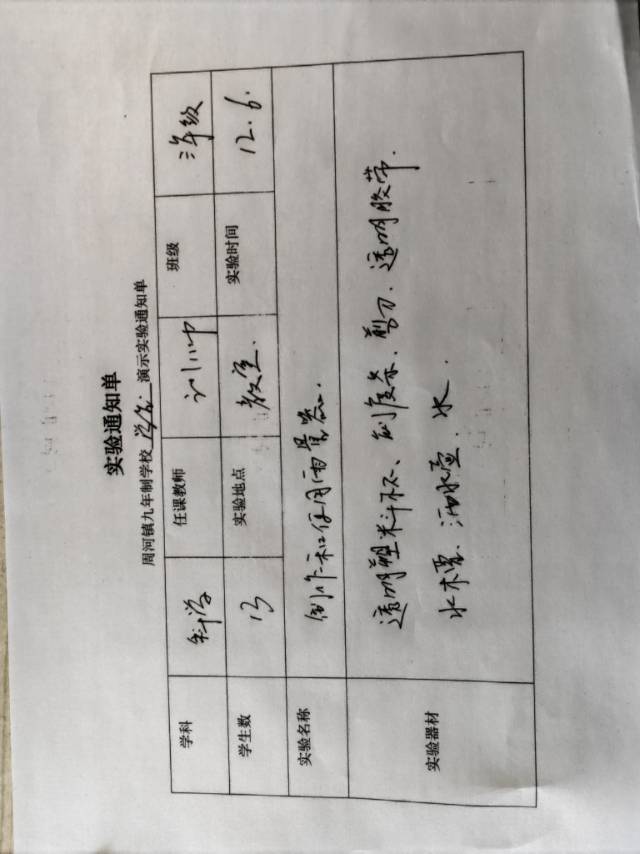 实验通知单
周河镇九年制学校 演示实验通知单
学科 科学 任课教师 班级 三年级
学生数 13 实验地点 教室. 实验时间 12.6.
实验名称 制作和使用雨量器.
实验器材 透明塑料杯、刻度条、剪刀、透明胶带.
水槽、洒水壶、水